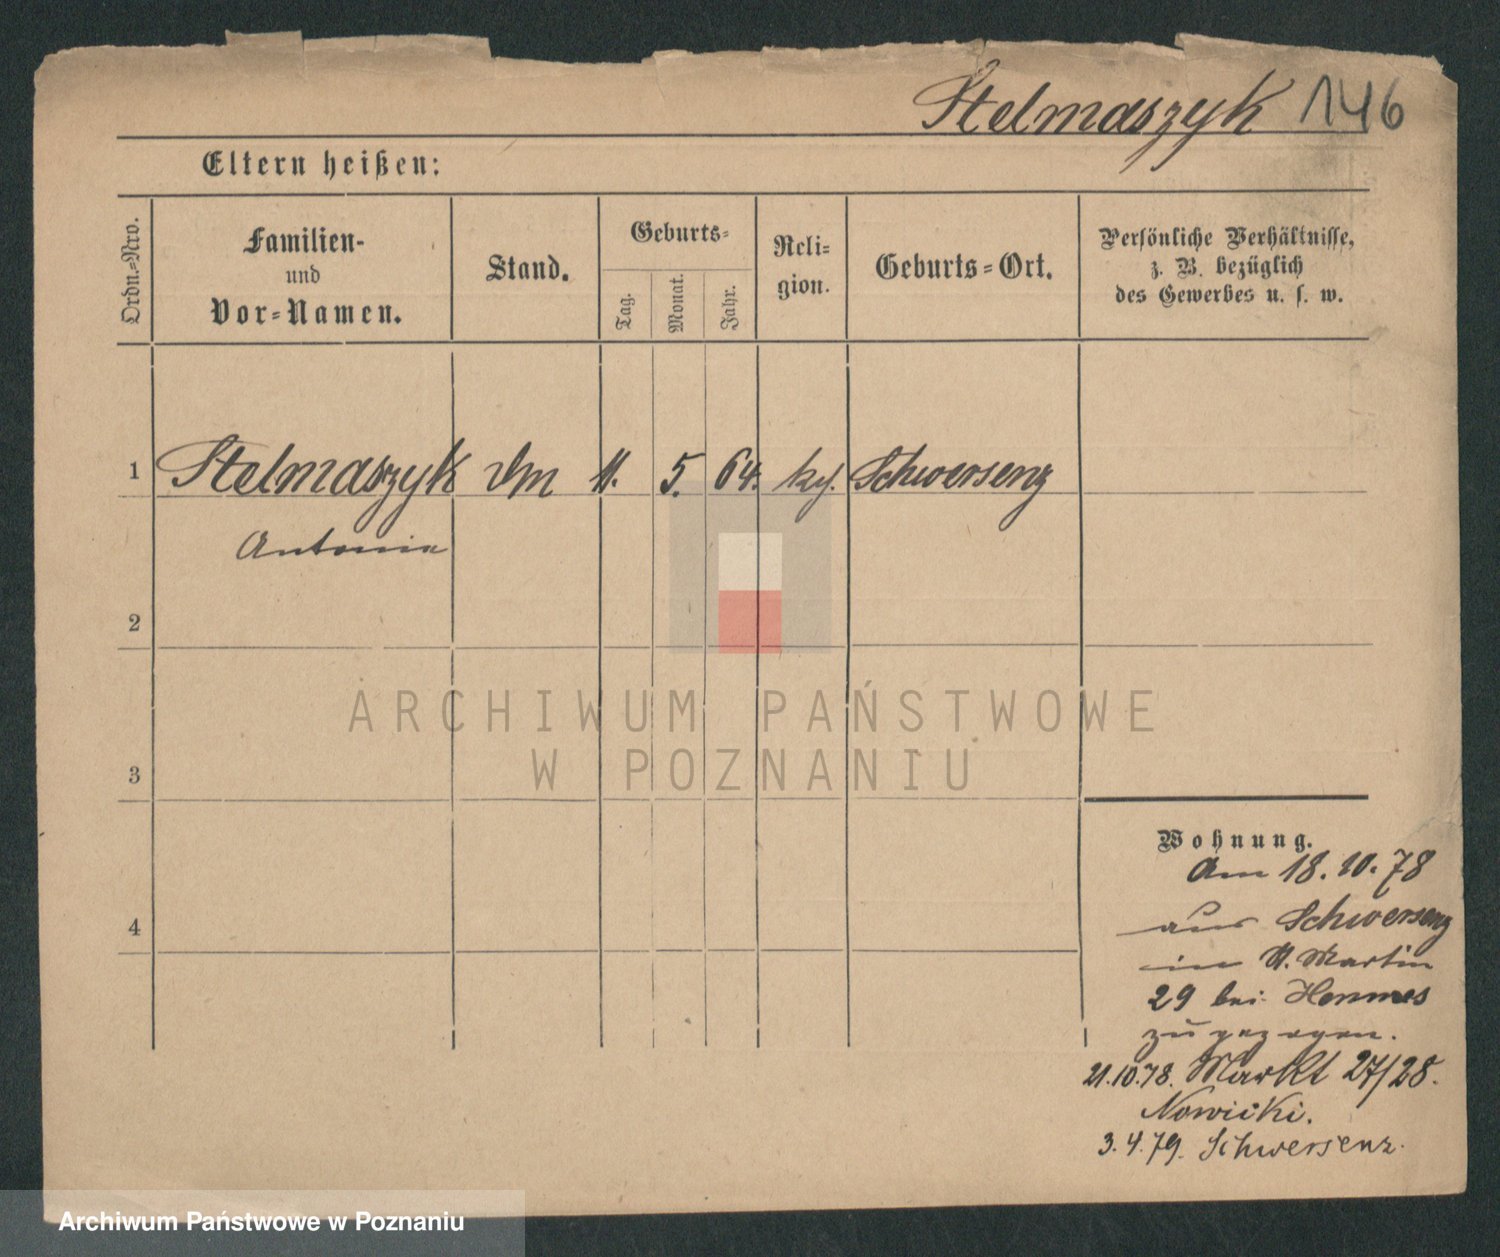 Stelmaszyk 146
Eltern heißen:
Ordn.-Nro.
Familien-
und
Vor-Namen.
Stand.
Geburts-
Tag.
Monat.
Jahr.
Reli-
gion.
Geburts-Ort.
Persönliche Verhältnisse,
z. B. bezüglich
des Gewerbes u. s. w.
1 Stelmaszyk 11. 5. 64. Schwersenz
Antonie
2
3
4
ARCHIWUM PAŃSTWOWE
W POZNANIU
Wohnung.
Am 18.10.78
aus Schwersenz
in St. Martin
29 bei Hennes
zugezogen.
21.10.78. Markt 27/28.
Nowicki.
3.4.79. Schwersenz.
Archiwum Państwowe w Poznaniu